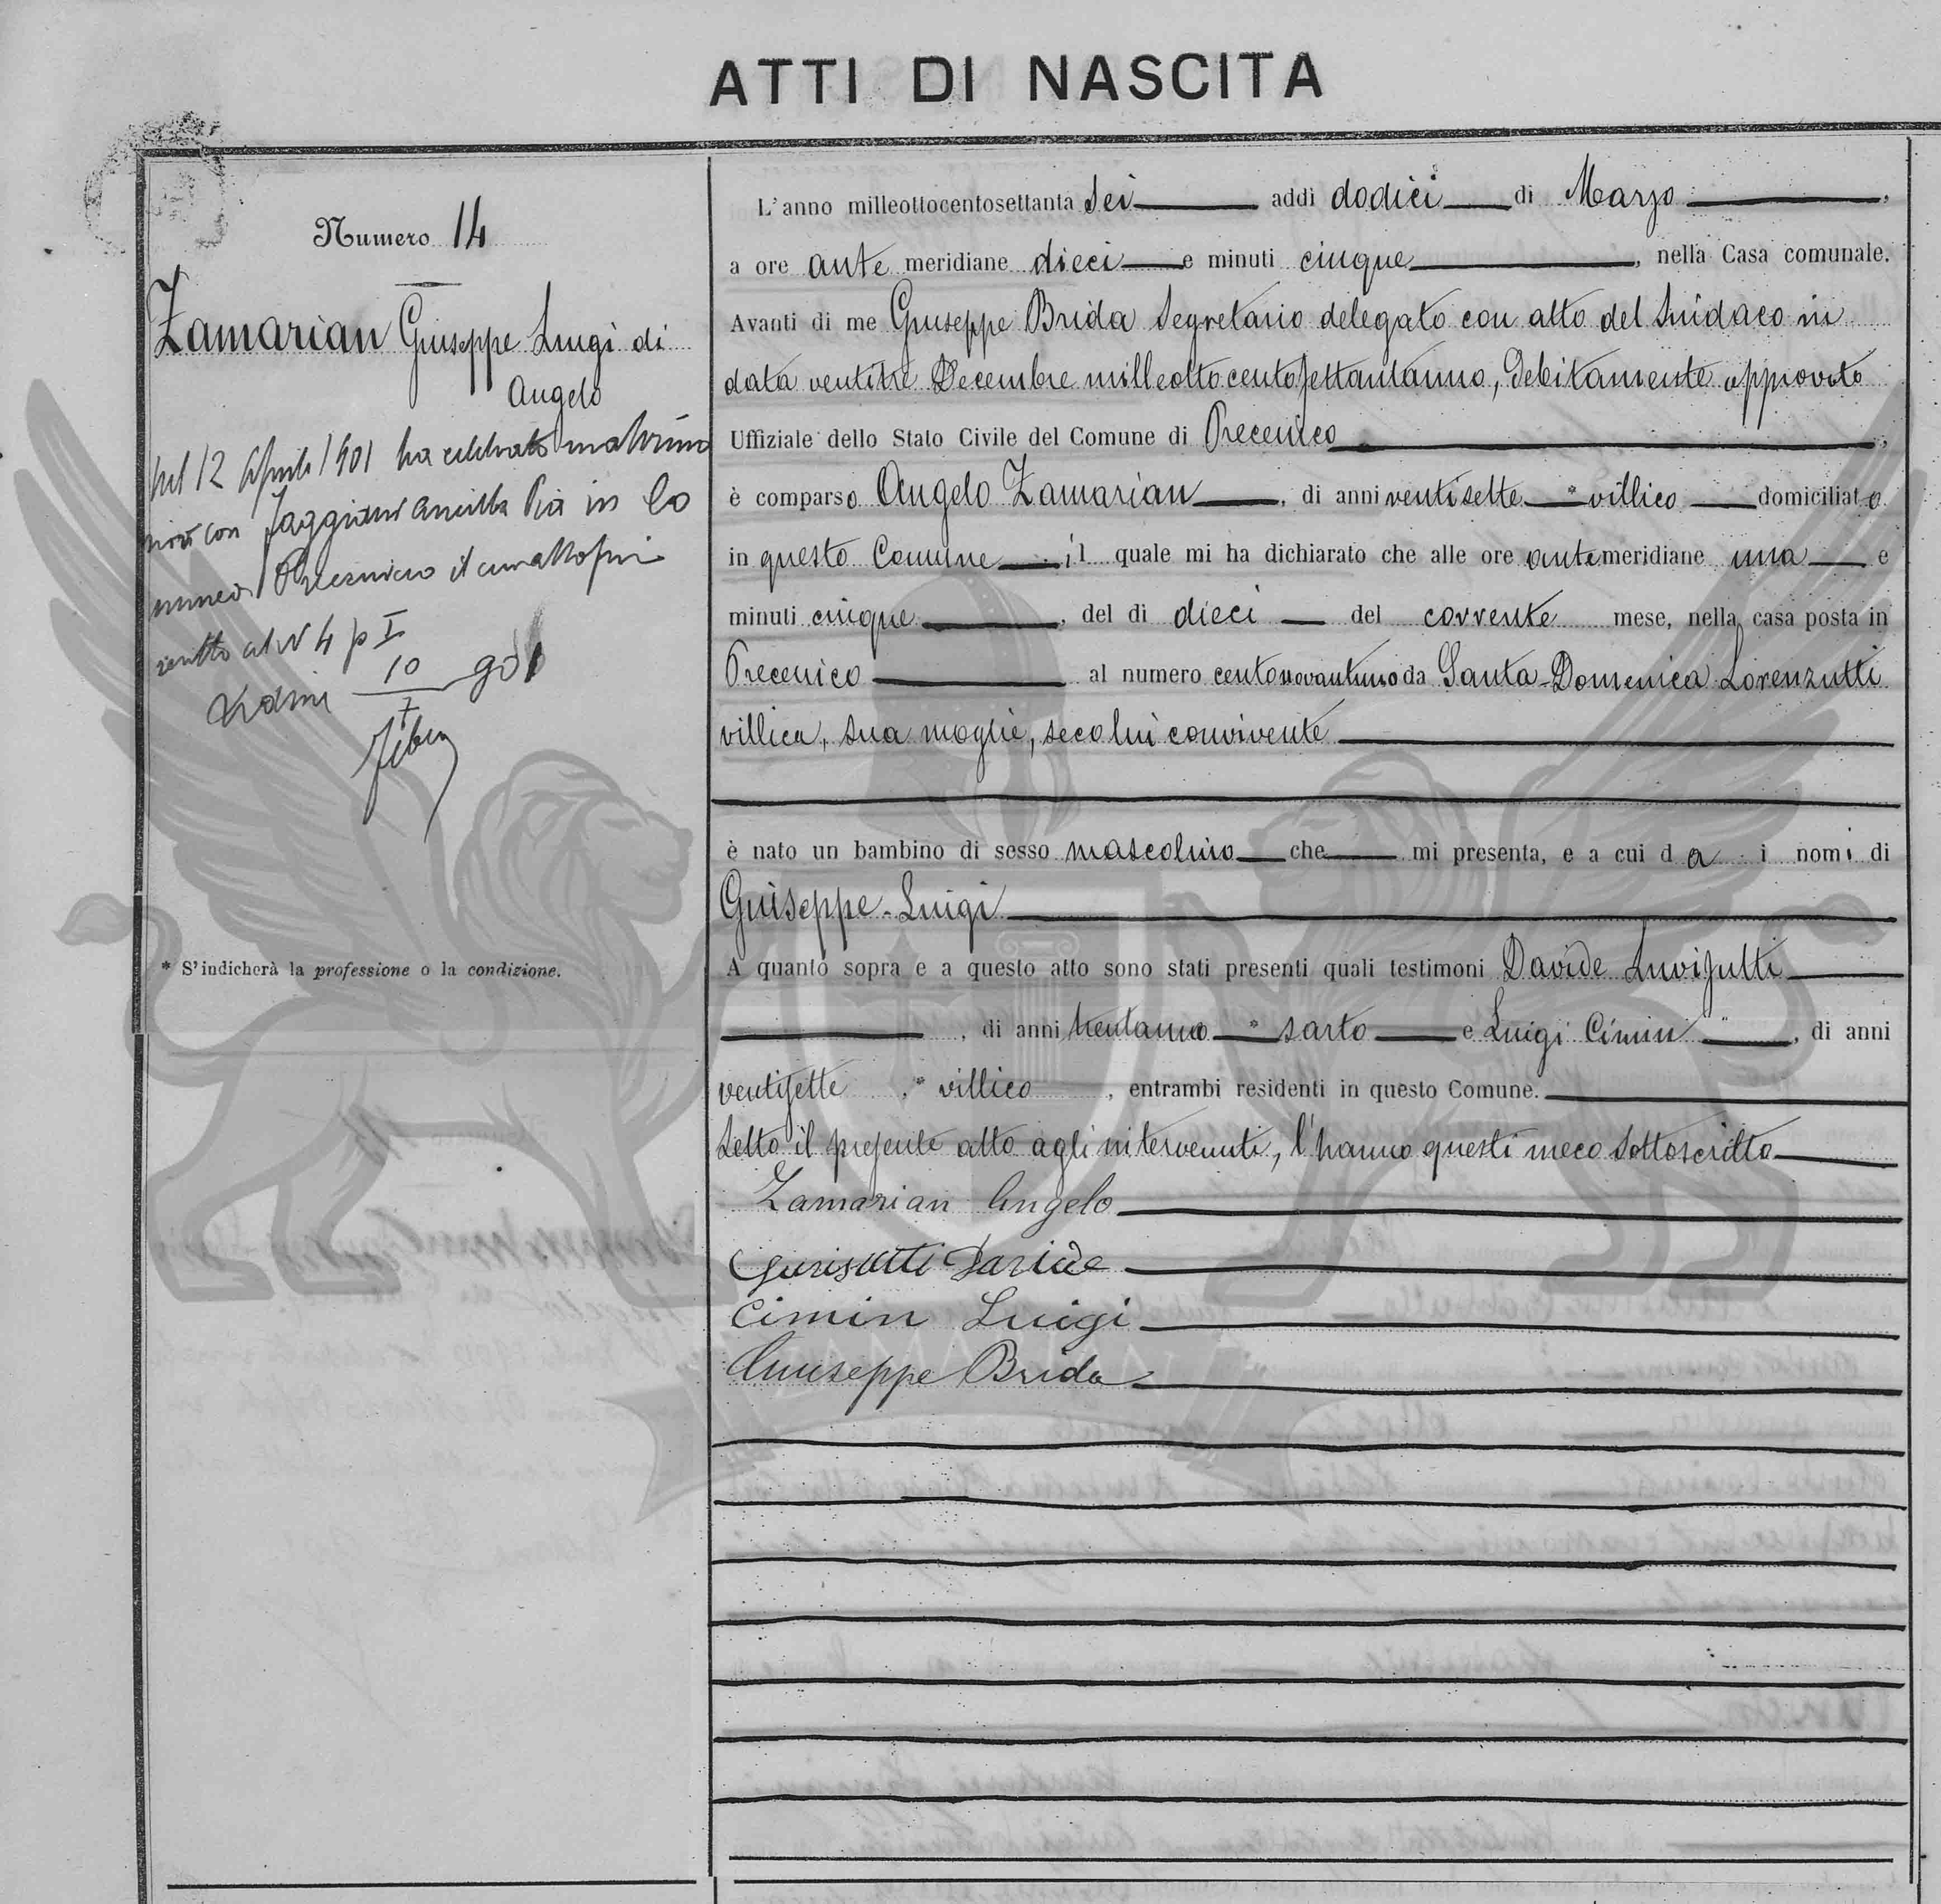 ATTI DI NASCITA
Numero 14
Zamarian Giuseppe Luigi di
Angelo
Nel 12 Aprile 1901 ha celebrato matrimo
nio con Faggiani Ancilla Pia in Co
mune di Precenico il cui atto è in
scritto al N 4 p I
Udine 10/7 901
* S'indicherà la professione o la condizione.
L'anno milleottocentosettanta sei addì dodici di Marzo,
a ore ante meridiane dieci e minuti cinque, nella Casa comunale.
Avanti di me Giuseppe Brida Segretario delegato con atto del Sindaco in
data ventitre Decembre milleottocentosettantauno, debitamente approvato
Uffiziale dello Stato Civile del Comune di Precenico,
è comparso Angelo Zamarian, di anni ventisette * villico domiciliato
in questo Comune il quale mi ha dichiarato che alle ore antemeridiane una e
minuti cinque, del dì dieci del corrente mese, nella casa posta in
Precenico al numero centonovantuno da Santa-Domenica Lorenzutti
villica, sua moglie, seco lui convivente
è nato un bambino di sesso mascolino che mi presenta, e a cui da i nomi di
Giuseppe-Luigi
A quanto sopra e a questo atto sono stati presenti quali testimoni Davide
, di anni trentauno * sarto e Luigi Cimin, di anni
ventisette, * villico, entrambi residenti in questo Comune.
Letto il presente atto agli intervenuti, l'hanno questi meco sottoscritto
Zamarian Angelo
Davide
Cimin Luigi
Giuseppe Brida